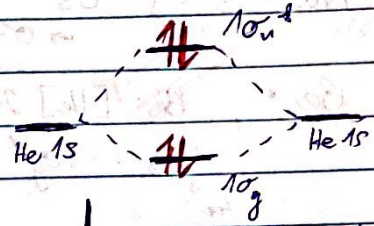 1σu*
He 1s He 1s
1σg